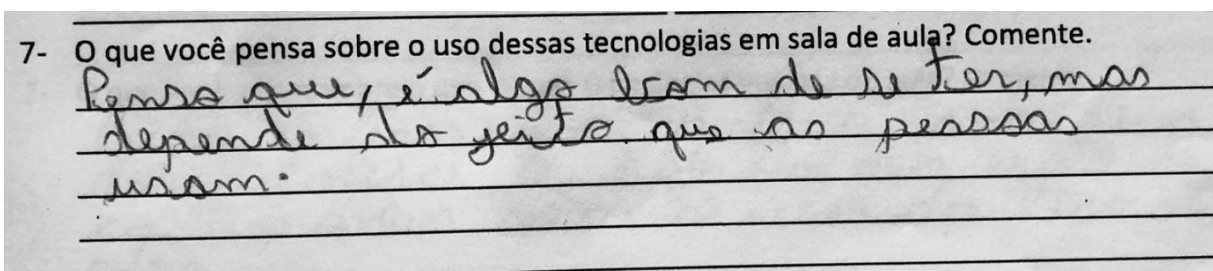 7- O que você pensa sobre o uso dessas tecnologias em sala de aula? Comente.
Penso que, é algo bom de se ter, mas
depende do jeito que as pessoas
usam.